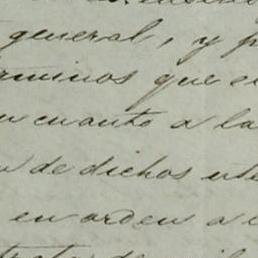 general, y p
rminos que e
n cuanto a la
o de dichos ute
en orden a